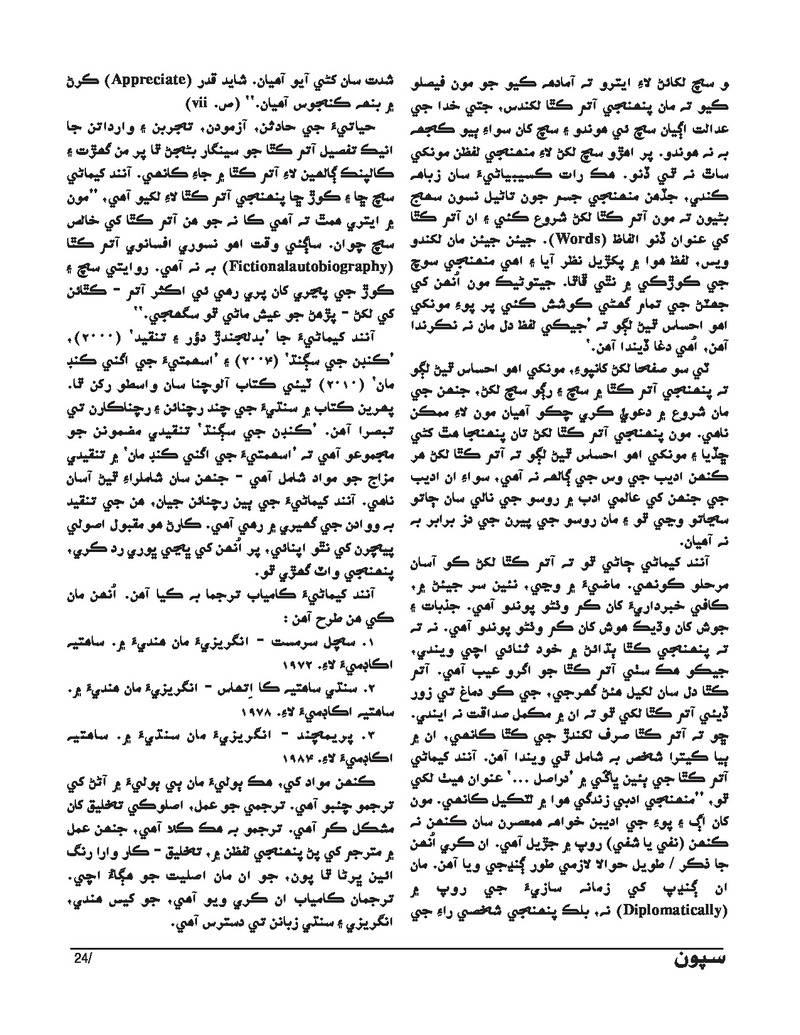 و سچ لکائڻ لاءِ ايترو ته آمادهه ڪيو جو مون فيصلو
ڪيو ته مان پنهنجي آتم ڪٿا لکندس، جتي خدا جي
عدالت اڳيان سچ ئي هوندو ۽ سچ کان سواءِ ٻيو ڪجهه
به نه هوندو. پر اهڙو سچ لکڻ لاءِ منهنجي لفظن مونکي
ساٿ نه ٿي ڏنو. هڪ رات ڪسيبياڻيءَ سان زباهه
ڪندي، جڏهن منهنجي جسم جون تاڻيل نسون سهج
بڻيون ته مون آتم ڪٿا لکڻ شروع ڪئي ۽ ان آتم ڪٿا
کي عنوان ڏنو الفاظ (Words). جيئن جيئن مان لکندو
ويس، لفظ هوا ۾ پکڙيل نظر آيا ۽ اهي منهنجي سوچ
جي ڪوڙڪي ۾ نٿي ڦاٿا. جيتوڻيڪ مون اُنهن کي
جهٽڻ جي تمام گهڻي ڪوشش ڪئي پر پوءِ مونکي
اهو احساس ٿيڻ لڳو ته ’جيڪي لفظ دل مان نه نڪرندا
آهن، اُهي دغا ڏيندا آهن.‘
ٽي سو صفحا لکڻ کانپوءِ، مونکي اهو احساس ٿيڻ لڳو
ته پنهنجي آتم ڪٿا ۾ سچ ۽ رڳو سچ لکڻ، جنهن جي
مان شروع ۾ دعويٰ ڪري چڪو آهيان مون لاءِ ممڪن
ناهي. مون پنهنجي آتم ڪٿا لکڻ تان پنهنجا هٿ کڻي
ڇڏيا ۽ مونکي اهو احساس ٿيڻ لڳو ته آتم ڪٿا لکڻ هر
ڪنهن اديب جي وس جي ڳالهه نه آهي، سواءِ ان اديب
جي جنهن کي عالمي ادب ۾ روسو جي نالي سان ڄاتو
سڃاتو وڃي ٿو ۽ مان روسو جي پيرن جي دز برابر به
نه آهيان.
آنند کيماڻي ڄاڻي ٿو ته آتم ڪٿا لکڻ ڪو آسان
مرحلو ڪونهي. ماضيءَ ۾ وڃي، نئين سر جيئڻ ۾،
ڪافي خبرداريءَ کان ڪم وٺڻو پوندو آهي. جذبات ۽
جوش کان وڌيڪ هوش کان ڪم وٺڻو پوندو آهي. نه ته
ته پنهنجي ڪٿا ٻڌائڻ ۾ خود ثنائي اچي ويندي،
جيڪو هڪ سٺي آتم ڪٿا جو اگرو عيب آهي. آتم
ڪٿا دل سان لکيل هئڻ گهرجي، جي ڪو دماغ تي زور
ڏيئي آتم ڪٿا لکي ٿو ته ان ۾ مڪمل صداقت نه ايندي.
ڇو ته آتم ڪٿا صرف لکندڙ جي ڪٿا ڪانهي، ان ۾
ٻيا ڪيترا شخص به شامل ٿي ويندا آهن. آنند کيماڻي
آتم ڪٿا جي ٻئين ڀاڱي ۾ ’دراصل ...‘ عنوان هيٺ لکي
ٿو، ”منهنجي ادبي زندگي هوا ۾ لٽڪيل ڪانهي. مون
کان اڳ ۽ پوءِ جي اديبن خواهه همعصرن سان ڪنهن نه
ڪنهن (نفي يا شفي) روپ ۾ جڙيل آهي. ان ڪري اُنهن
جا ذڪر / طويل حوالا لازمي طور ڳنڍجي ويا آهن. مان
ان ڳنڍپ کي زمانه سازيءَ جي روپ ۾
(Diplomatically) نه، بلڪ پنهنجي شخصي راءِ جي
شدت سان کڻي آيو آهيان. شايد قدر (Appreciate) ڪرڻ
۾ بنهه ڪنجوس آهيان.“ (ص. vii)
حياتيءَ جي حادثن، آزمودن، تجربن ۽ وارداتن جا
انيڪ تفصيل آتم ڪٿا جو سينگار بڻجن ٿا پر من گهڙت ۽
ڪالپنڪ ڳالهين لاءِ آتم ڪٿا ۾ جاءِ ڪانهي. آنند کيماڻي
سچ ڇا ۽ ڪوڙ ڇا پنهنجي آتم ڪٿا لاءِ لکيو آهي، ”مون
۾ ايتري همٿ نه آهي ڪا نه جو هن آتم ڪٿا کي خالص
سچ چوان. ساڳئي وقت اهو نسوري افسانوي آتم ڪٿا
(Fictionalautobiography) به نه آهي. روايتي سچ ۽
ڪوڙ جي پڃري کان پري رهي ئي اڪثر آتم - ڪٿائن
کي لکڻ - پڙهڻ جو عيش ماڻي ٿو سگهجي.“
آنند کيماڻيءَ جا ’بدلجندڙ دؤر ۽ تنقيد‘ (۲۰۰۰)،
’ڪنڊن جي سڳنڌ‘ (۲۰۰۴) ۽ ’اسهمتيءَ جي اگني ڪنڊ
مان‘ (۲۰۱۰) ٽيئي ڪتاب آلوچنا سان واسطو رکن ٿا.
پهرين ڪتاب ۾ سنڌيءَ جي چند رچنائن ۽ رچناڪارن تي
تبصرا آهن. ’ڪنڊن جي سڳنڌ‘ تنقيدي مضمونن جو
مجموعو آهي ته ’اسهمتيءَ جي اگني ڪنڊ مان‘ ۾ تنقيدي
مزاج جو مواد شامل آهي - جنهن سان شاملراءِ ٿيڻ آسان
ناهي. آنند کيماڻيءَ جي ٻين رچنائن جيان، هن جي تنقيد
به ووادن جي گهيري ۾ رهي آهي. ڪارڻ هو مقبول اصولي
پيچرن کي نٿو اپنائي، پر اُنهن کي ڀڃي ڀوري رد ڪري،
پنهنجي واٽ گهڙي ٿو.
آنند کيماڻيءَ ڪامياب ترجما به ڪيا آهن. اُنهن مان
ڪي هن طرح آهن :
۱. سچل سرمست - انگريزيءَ مان هنديءَ ۾. ساهتيه
اڪاڊميءَ لاءِ. ۱۹۷۲
۲. سنڌي ساهتيه ڪا اِتهاس - انگريزيءَ مان هنديءَ ۾.
ساهتيه اڪاڊميءَ لاءِ. ۱۹۷۸
۳. پريمچند - انگريزيءَ مان سنڌيءَ ۾. ساهتيه
اڪاڊميءَ لاءِ. ۱۹۸۴
ڪنهن مواد کي، هڪ ٻوليءَ مان ٻي ٻوليءَ ۾ آڻڻ کي
ترجمو چئبو آهي. ترجمي جو عمل، اصلوڪي تخليق کان
مشڪل ڪم آهي. ترجمو به هڪ ڪلا آهي، جنهن عمل
۾ مترجم کي پڻ پنهنجي لفظن ۾، تخليق - ڪار وارا رنگ
ائين ڀرڻا ٿا پون، جو ان مان اصليت جو هڳاءُ اچي.
ترجمان ڪامياب ان ڪري ويو آهي، جو کيس هندي،
انگريزي ۽ سنڌي زبانن تي دسترس آهي.
24/
سپون